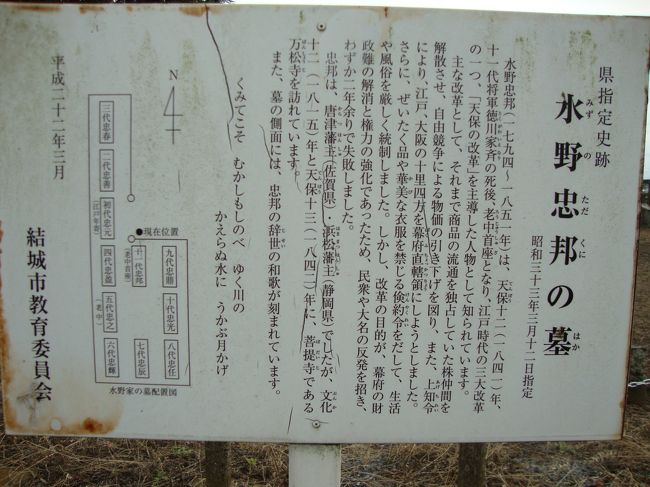 県指定史跡
水野忠邦の墓
みずのただくにはか
昭和三十三年三月十二日指定
水野忠邦(一七九四〜一八五一年)は、天保十二(一八四一)年、
十一代将軍徳川家斉の死後、老中首座となり、江戸時代の三大改革
の一つ、「天保の改革」を主導した人物として知られています。
主な改革として、それまで商品の流通を独占していた株仲間を
解散させ、自由競争による物価の引き下げを図り、また、上知令
により、江戸、大阪の十里四方を幕府直轄領にしようとしました。
さらに、ぜいたく品や華美な衣服を禁じる倹約令をだして、生活
や風俗を厳しく統制しました。しかし、改革の目的が、幕府の財
政難の解消と権力の強化であったため、民衆や大名の反発を招き、
わずか二年余りで失敗しました。
忠邦は、唐津藩主(佐賀県)・浜松藩主(静岡県)でしたが、文化
十二(一八一五)年と天保十三(一八四二)年に、菩提寺である
万松寺を訪れています。
また、墓の側面には、忠邦の辞世の和歌が刻まれています。
くみてこそ むかしもしのべ ゆく川の
かえらぬ水に うかぶ月かげ
N
三代忠春
二代忠善
初代忠元
(江戸年寄)
四代忠盈
五代忠之
(老中)
六代忠輝
●現在位置
十一代忠邦
(老中首座)
七代忠辰
九代忠鼎
十代忠光
八代忠任
水野家の墓配置図
平成二十二年三月
結城市教育委員会